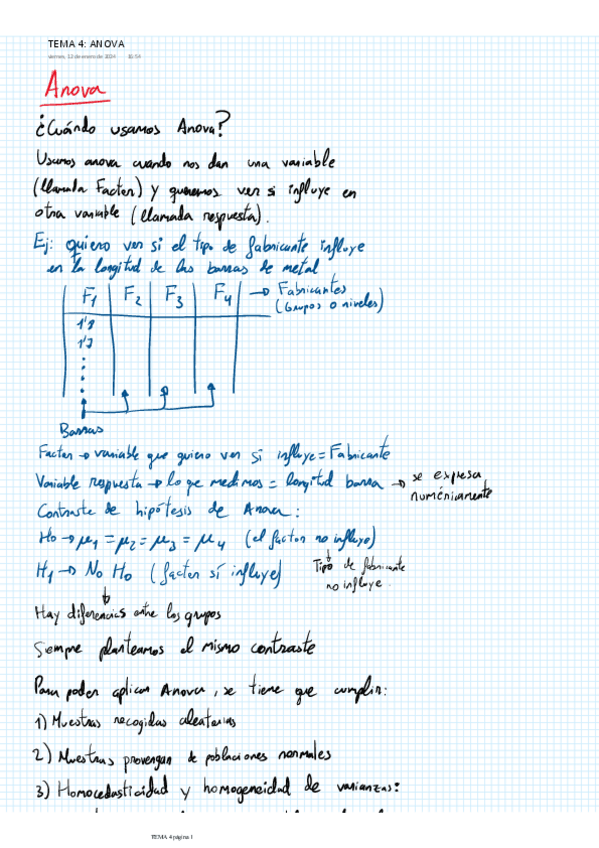 TEMA 4: ANOVA
viernes, 12 de enero de 2024 16:54
Anova
¿Cuándo usamos Anova?
Usamos anova cuando nos dan una variable
(llamada Factor) y queremos ver si influye en
otra variable (llamada respuesta).
Ej: quiero ver si el tipo de fabricante influye
en la longitud de las barras de metal
F1 F2 F3 F4 → Fabricantes
(Grupos o niveles)
1'2
1'3
Barras
Factor → variable que quiero ver si influye = Fabricante
Variable respuesta → lo que medimos = longitud barra → se expresa
numéricamente
Contraste de hipótesis de Anova:
Ho → μ1 = μ2 = μ3 = μ4 (el factor no influye)
H1 → No Ho (factor sí influye)
Tipo de fabricante
no influye.
Hay diferencias entre los grupos
Siempre planteamos el mismo contraste
Para poder aplicar Anova, se tiene que cumplir:
1) Muestras recogidas aleatorias
2) Muestras provengan de poblaciones normales
3) Homocedasticidad y homogeneidad de varianzas:
TEMA 4 página 1